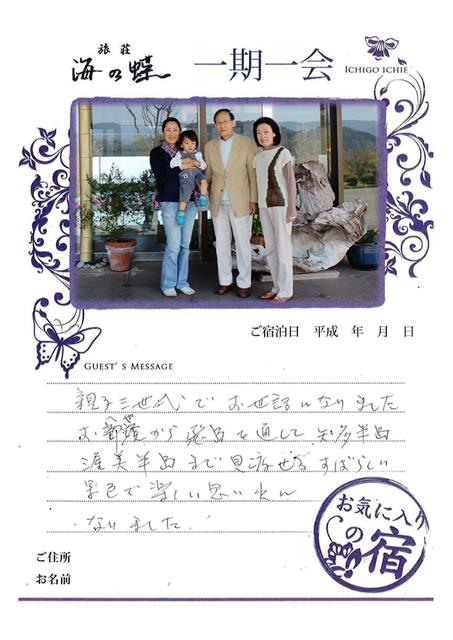 旅荘
海の蝶
一期一会
ICHIGO ICHIE
ご宿泊日 平成 年 月 日
GUEST'S MESSAGE
親子三世代でお世話になりました
お部屋から答志島を通して知多半島
渥美半島まで見渡せるすばらしい
景色で楽しい思い出に
なりました
ご住所
お名前
お気に入り
の宿